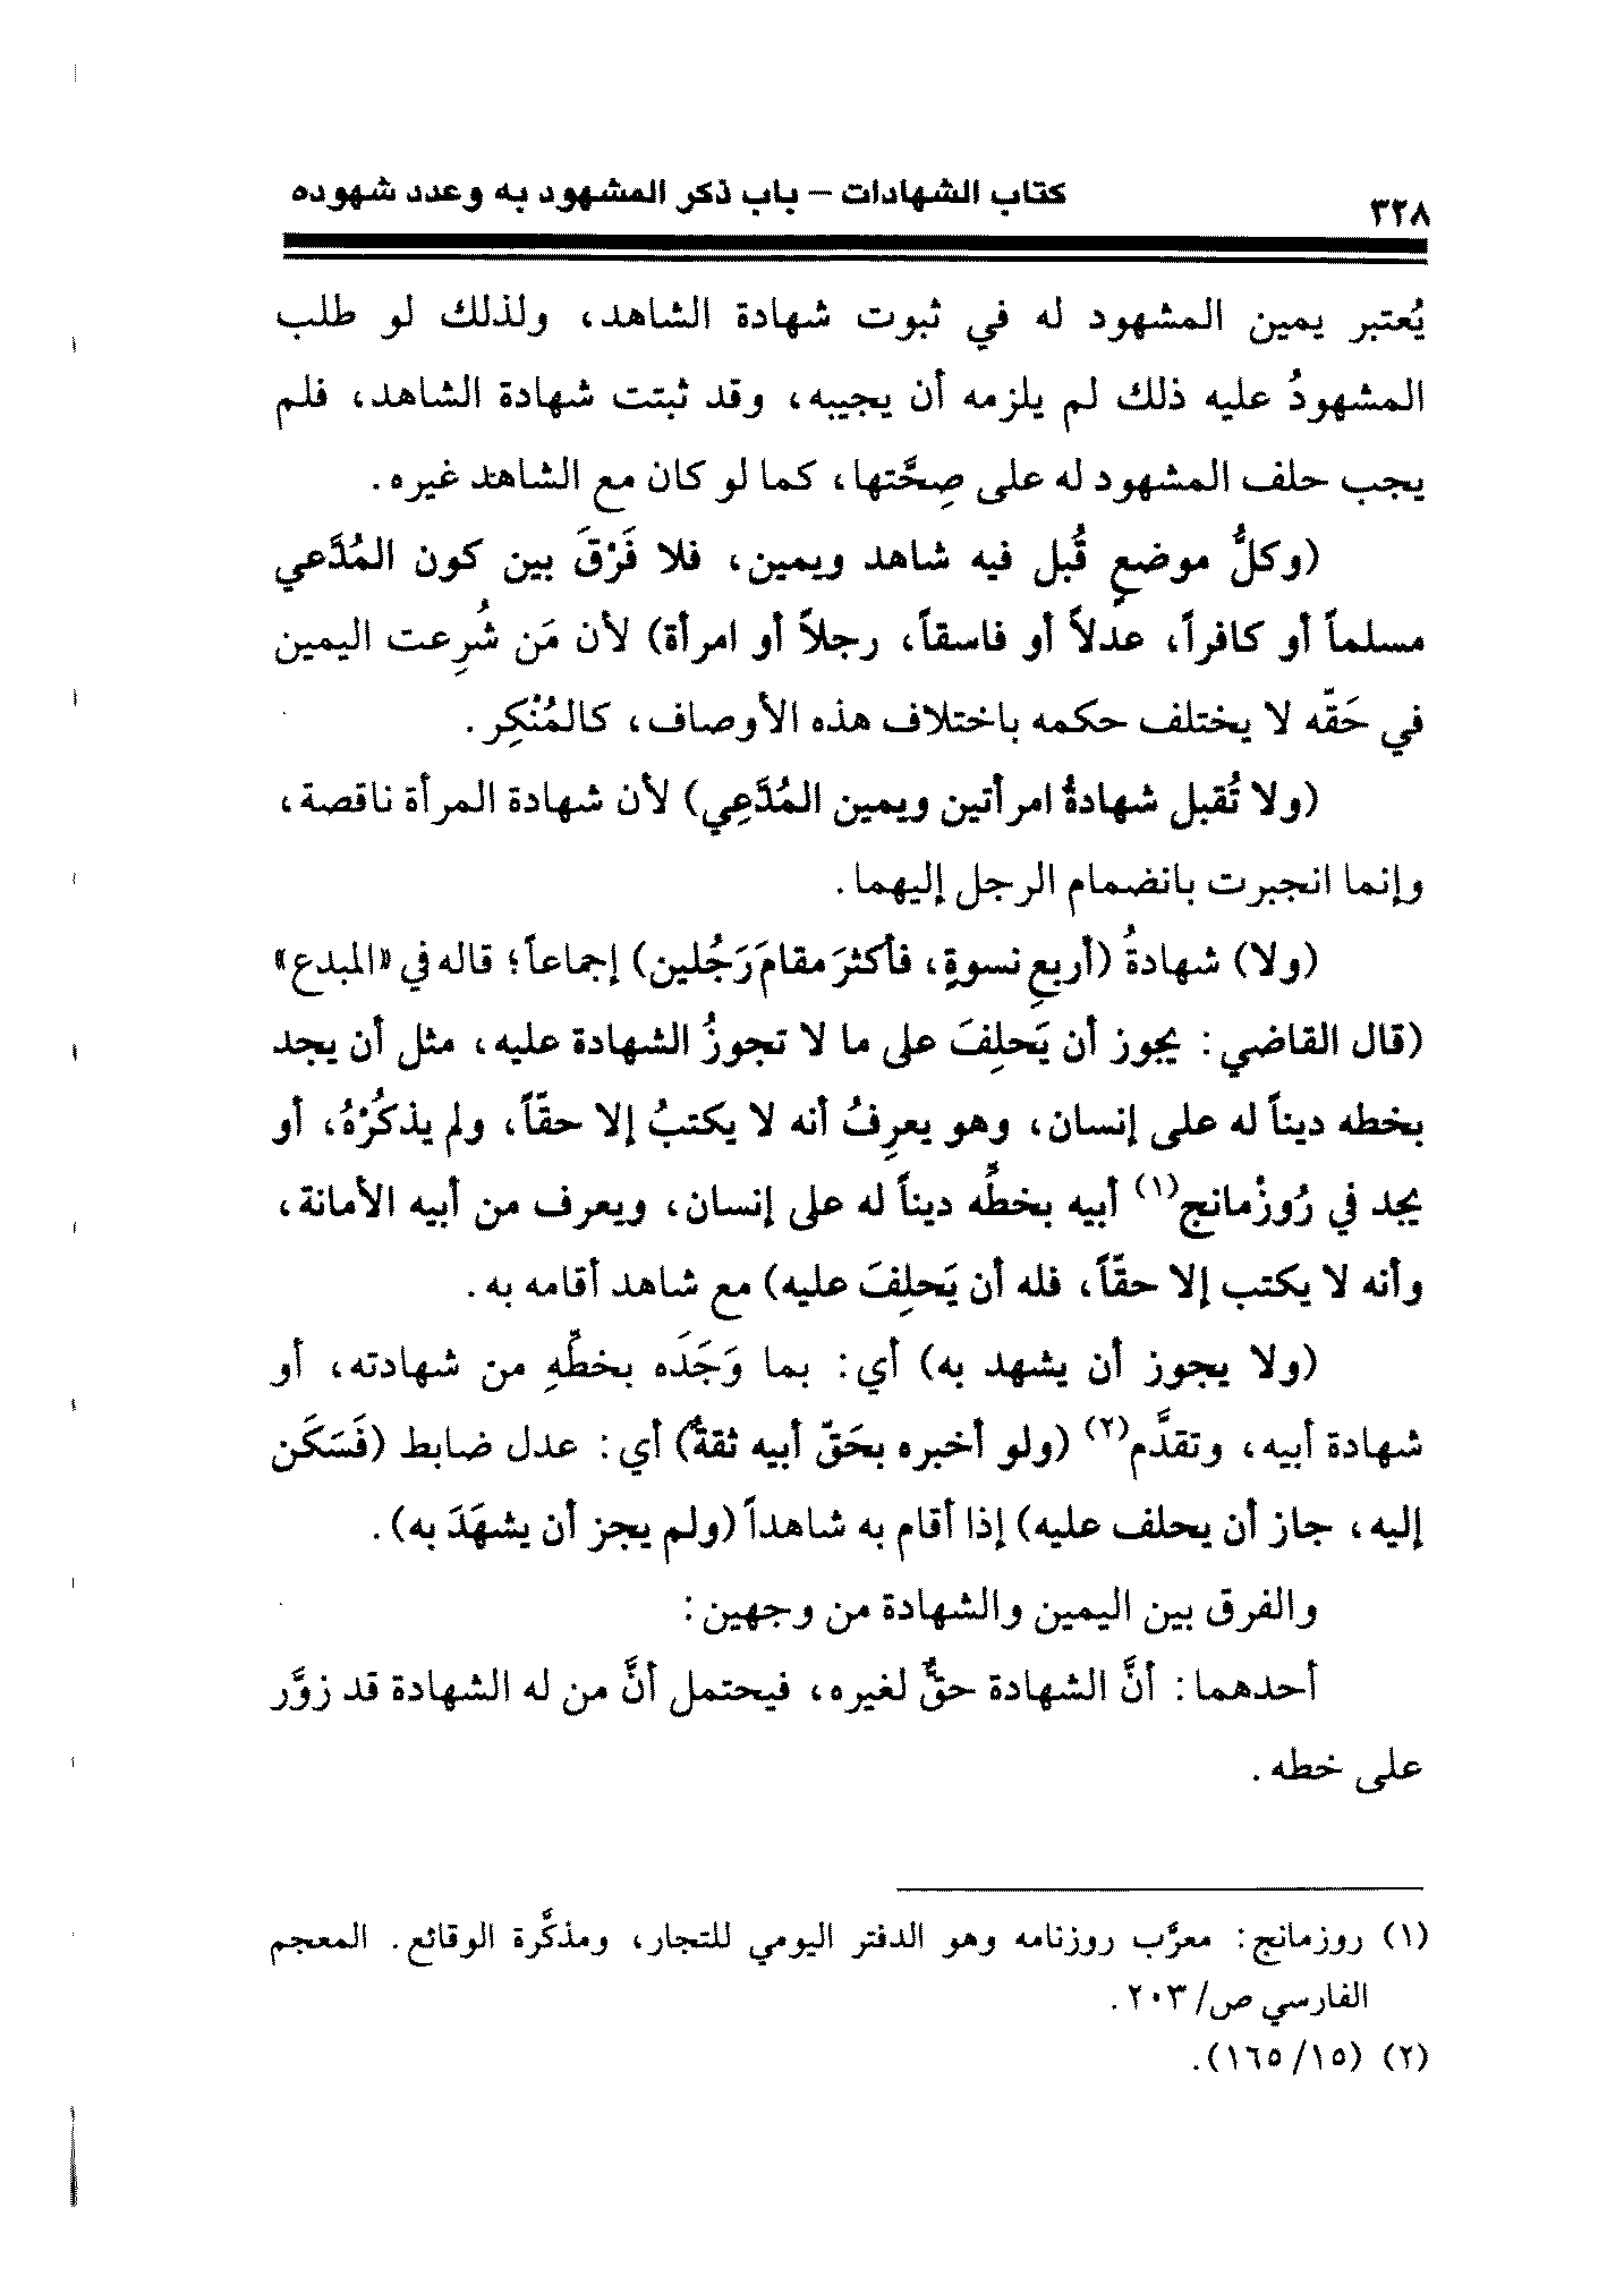 ٣٢٨
كتاب الشهادات – باب ذكر المشهود به وعدد شهوده
يُعتبر يمين المشهود له في ثبوت شهادة الشاهد، ولذلك لو طلب
المشهودُ عليه ذلك لم يلزمه أن يجيبه، وقد ثبتت شهادة الشاهد، فلم
يجب حلف المشهود له على صِحَّتها، كما لو كان مع الشاهد غيره.
(وكلُّ موضعٍ قُبل فيه شاهد ويمين، فلا فَرْقَ بين كون المُدَّعي
مسلماً أو كافراً، عدلاً أو فاسقاً، رجلاً أو امرأة) لأن مَن شُرِعت اليمين
في حَقّه لا يختلف حكمه باختلاف هذه الأوصاف، كالمُنْكِر.
(ولا تُقبل شهادةُ امرأتين ويمين المُدَّعِي) لأن شهادة المرأة ناقصة،
وإنما انجبرت بانضمام الرجل إليهما.
(ولا) شهادةُ (أربعِ نسوةٍ، فأكثرَ مقامَ رَجُلين) إجماعاً؛ قاله في «المبدع»
(قال القاضي: يجوز أن يَحلِفَ على ما لا تجوزُ الشهادة عليه، مثل أن يجد
بخطه ديناً له على إنسان، وهو يعرِفُ أنه لا يكتبُ إلا حقّاً، ولم يذكُرْهُ، أو
يجد في رُوزْمانج(١) أبيه بخطِّه ديناً له على إنسان، ويعرف من أبيه الأمانة،
وأنه لا يكتب إلا حقّاً، فله أن يَحلِفَ عليه) مع شاهد أقامه به.
(ولا يجوز أن يشهد به) أي: بما وَجَدَه بخطّهِ من شهادته، أو
شهادة أبيه، وتقدَّم(٢) (ولو أخبره بحَقّ أبيه ثقةٌ) أي: عدل ضابط (فَسَكَن
إليه، جاز أن يحلف عليه) إذا أقام به شاهداً (ولم يجز أن يشهَدَ به).
والفرق بين اليمين والشهادة من وجهين:
أحدهما: أنَّ الشهادة حقٌّ لغيره، فيحتمل أنَّ من له الشهادة قد زوَّر
على خطه.
(١) روزمانج: معرَّب روزنامه وهو الدفتر اليومي للتجار، ومذكَّرة الوقائع. المعجم
الفارسي ص/ ٢٠٣.
(٢) (١٥/ ١٦٥).